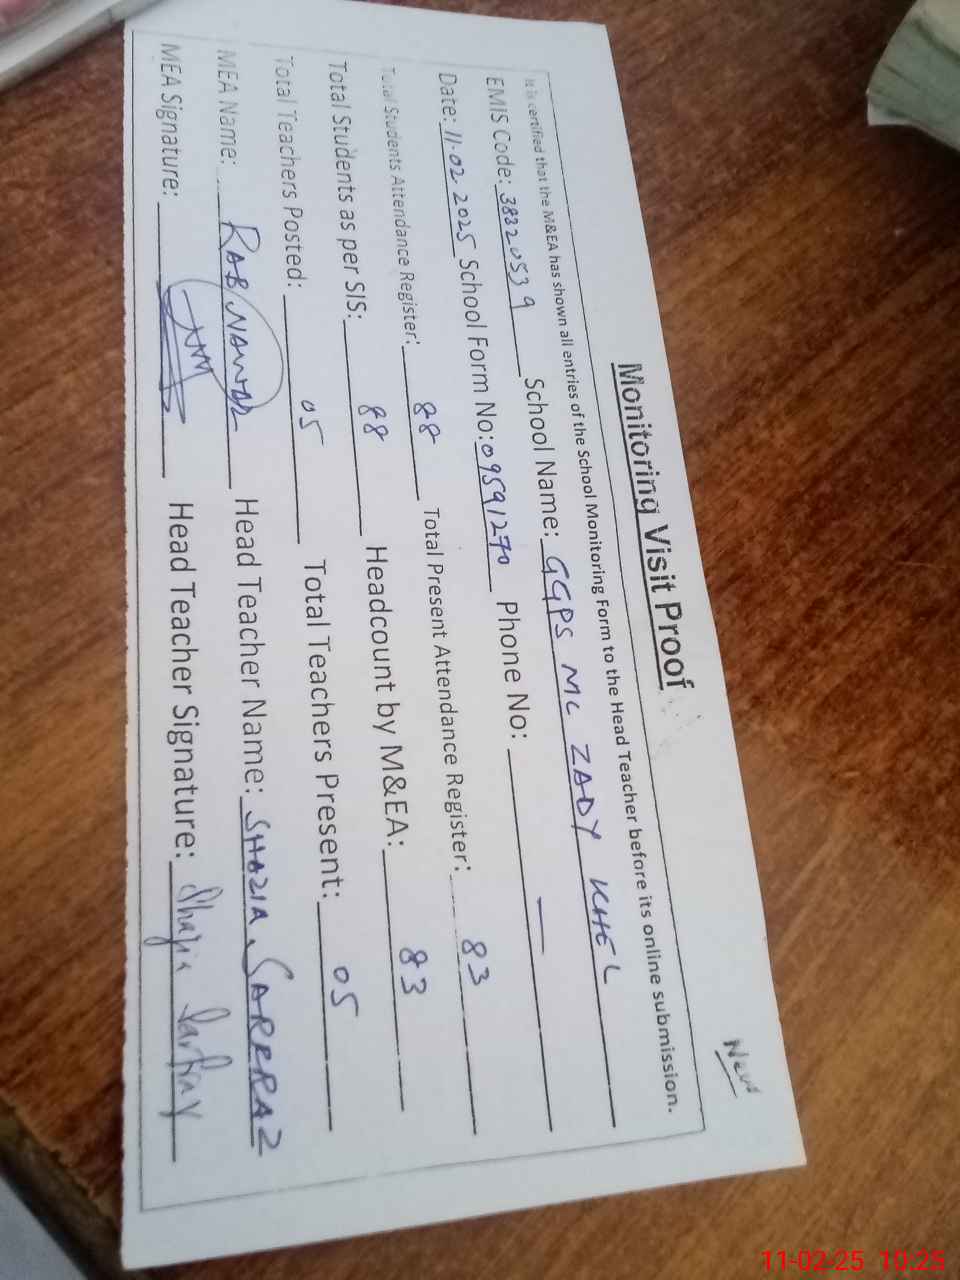 New
Monitoring Visit Proof
It is certified that the M&EA has shown all entries of the School Monitoring Form to the Head Teacher before its online submission.
EMIS Code: 38320539 School Name: GGPS MC ZADY KHEL
Date: 11.02.2025 School Form No: 09591270 Phone No: —
Total Students Attendance Register: 88 Total Present Attendance Register: 83
Total Students as per SIS: 88 Headcount by M&EA: 83
Total Teachers Posted: 05 Total Teachers Present: 05
MEA Name: RAB NAWAZ Head Teacher Name: SHAZIA SARFRAZ
MEA Signature: Head Teacher Signature: Shazia Sarfraz
11-02-25 10:25